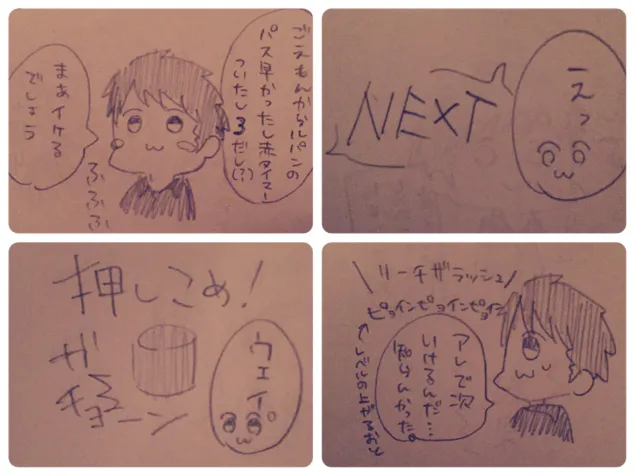 ごえもんからルパンの
パス早かったし赤タイマー
ついたし3だし(?)
まぁイケる
でしょう
ふふふ
えっ
NEXT
押しこめ!
ウェイ。
ガ
チョーン
\リーチザラッシュ/
ピョインピョインピョイン
アレで次
いけるんだ…
知らんかった。